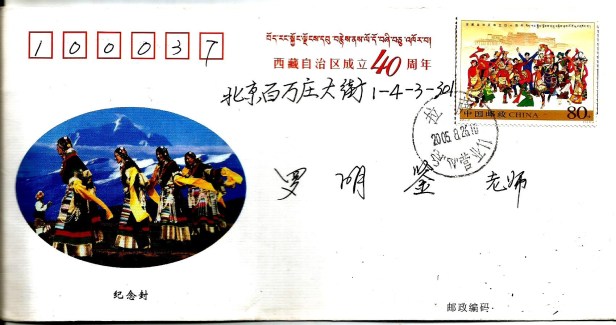 100037
བོད་རང་སྐྱོང་ལྗོངས་དབུ་བརྙེས་ནས་ལོ་ངོ་བཞི་བཅུ་འཁོར་བ།
西藏自治区成立40周年
北京百万庄大街1-4-3-301
中国邮政 CHINA 80分
2005.8.26.18
罗 明 鉴 老师
纪念封
邮政编码